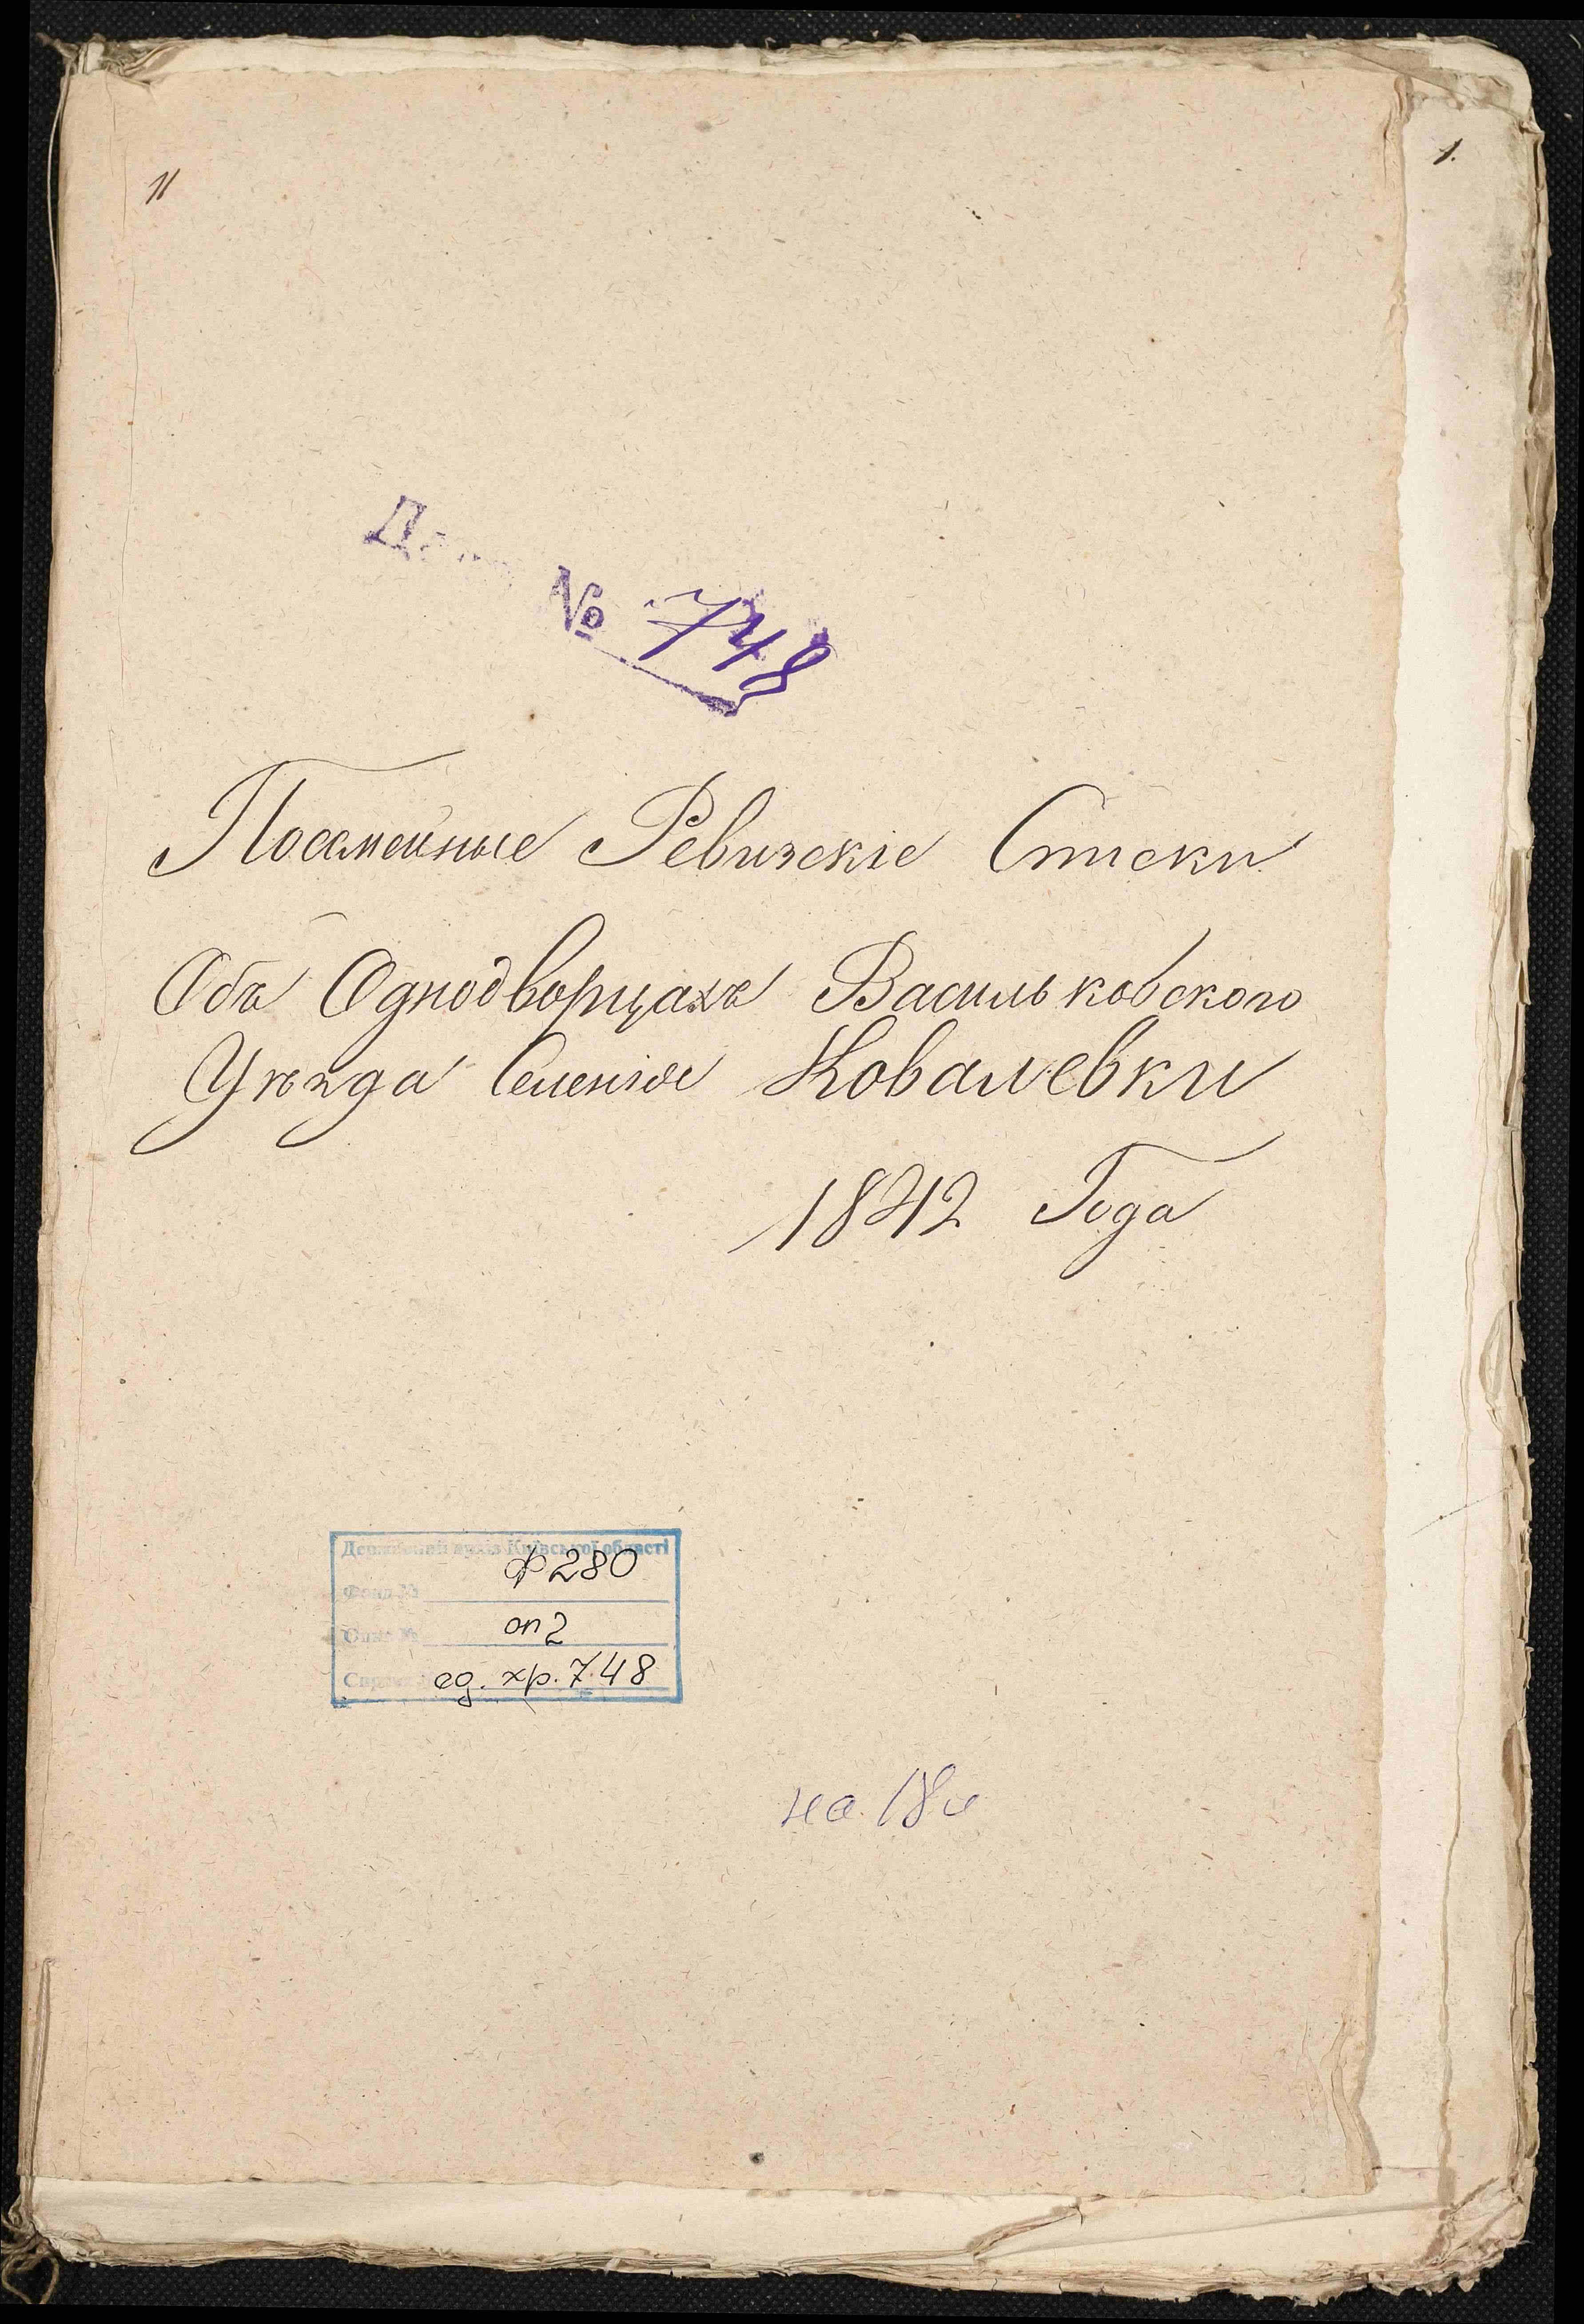 11
1.
№ 748
Посемейные Ревизскіе Списки
Объ Однодворцахъ Васильковского
Уѣзда Селенія Ковалевки
1842 Года
Державний архів Київської області
Фонд № ф 280
Опис № оп 2
Справа ед. хр. 748
на 18 л